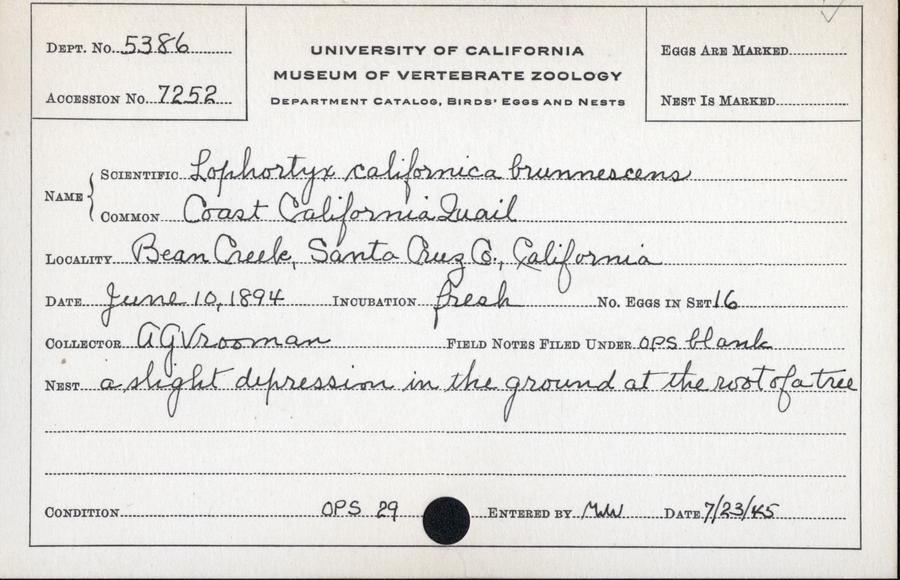 DEPT. NO. 5386
ACCESSION NO. 7252
UNIVERSITY OF CALIFORNIA
MUSEUM OF VERTEBRATE ZOOLOGY
DEPARTMENT CATALOG, BIRDS' EGGS AND NESTS
EGGS ARE MARKED
NEST IS MARKED
NAME
SCIENTIFIC Lophortyx californica brunnescens
COMMON Coast California Quail
LOCALITY Bean Creek, Santa Cruz Co., California
DATE June 10, 1894 INCUBATION fresh NO. EGGS IN SET 16
COLLECTOR AGVrooman FIELD NOTES FILED UNDER OPS blank
NEST a slight depression in the ground at the root of a tree
CONDITION OPS 29 ENTERED BY MWW DATE 7/23/45